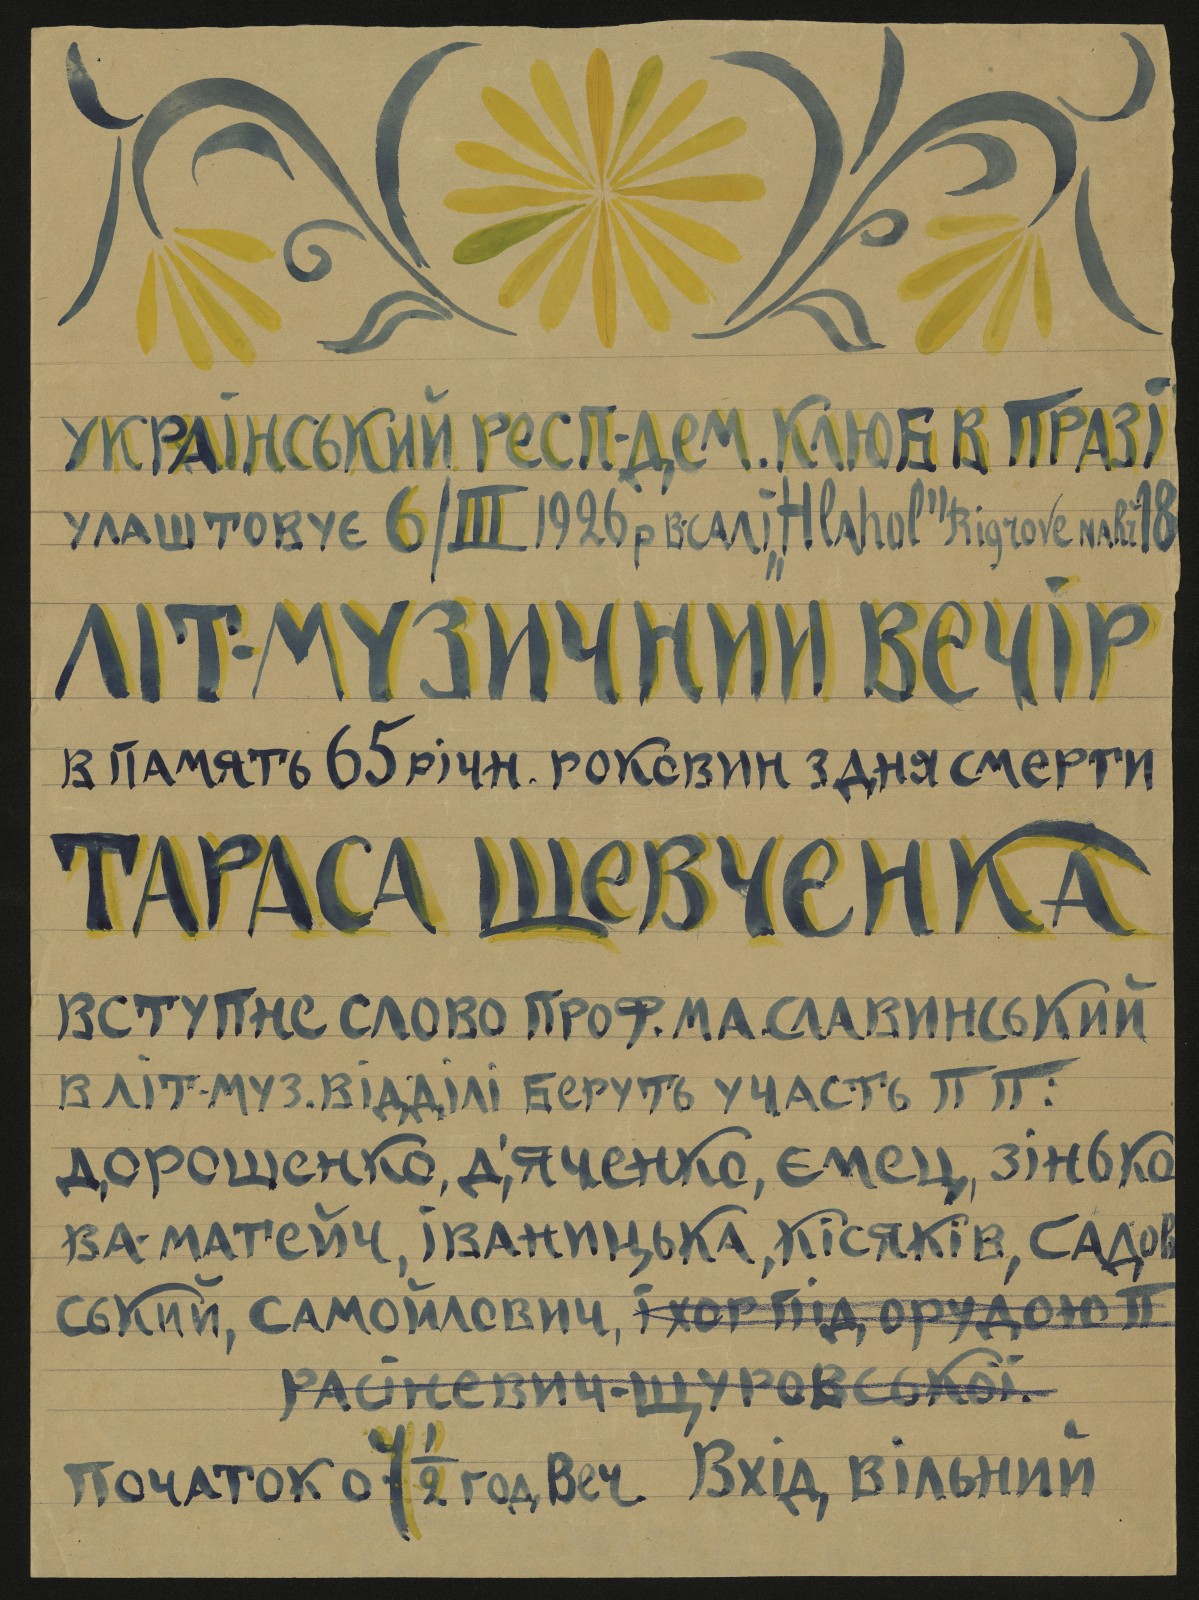 Український Респ-Дем. Клюб в Празі
улаштовує 6/III 1926 р в салі „Hlahol" Rigrove nabř 18
Літ-музичний вечір
в память 65 річн. роковин з дня смерти
Тараса Шевченка
вступне слово проф. М А. Славинський
в літ-муз. відділі беруть участь П П:
Дорошенко, Д'яченко, Ємец, Зінько
ва-Матейч, Іваницька, Кісяків, Садов
ський, Самойлович, і хор під орудою П
Расіневич-Щуровської.
Початок о 7 1/2 год веч Вхід вільний